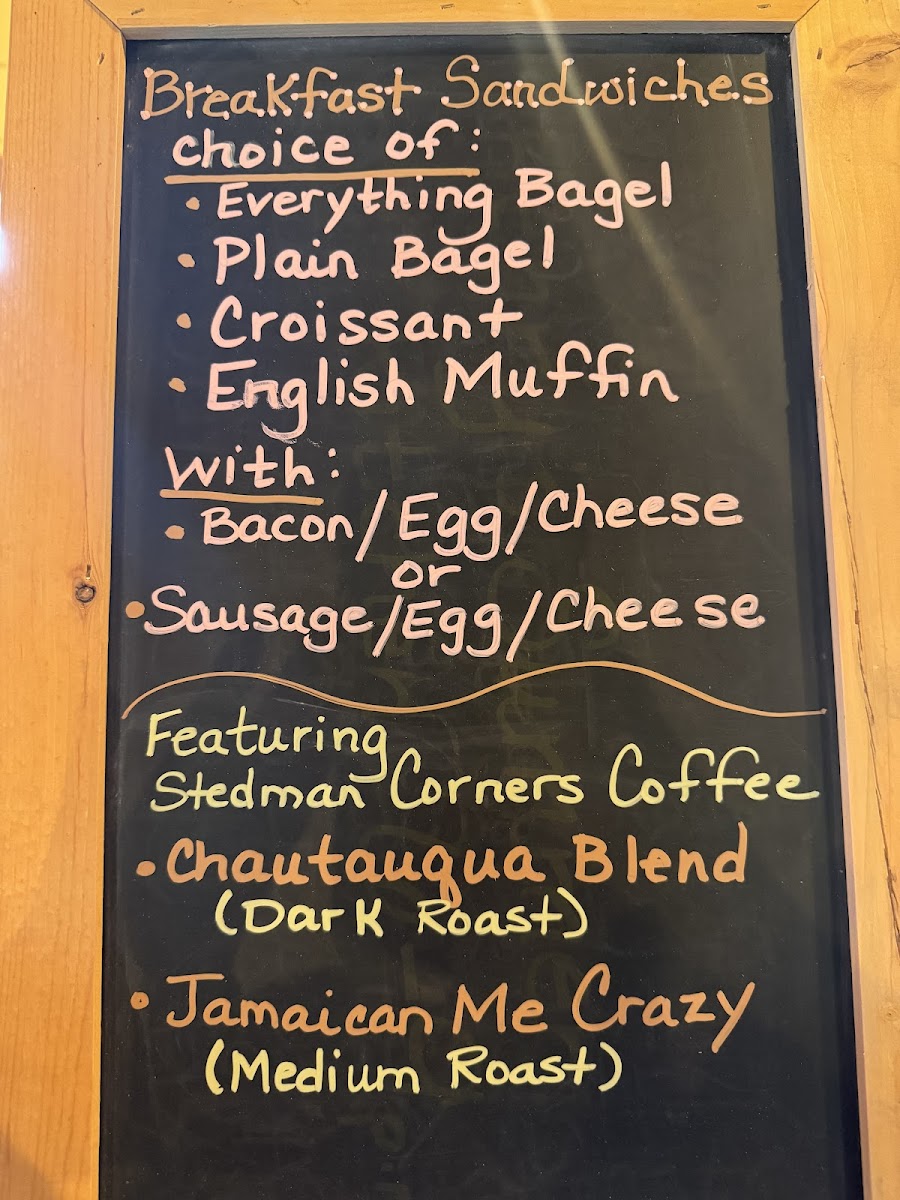 Breakfast Sandwiches
choice of:
• Everything Bagel
• Plain Bagel
• Croissant
• English Muffin
with:
• Bacon/Egg/Cheese
or
• Sausage/Egg/Cheese
Featuring
Stedman Corners Coffee
• Chautauqua Blend
(Dark Roast)
• Jamaican Me Crazy
(Medium Roast)